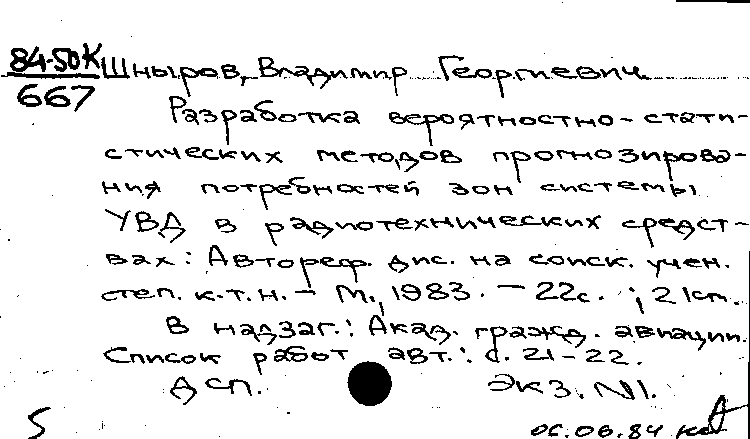 84-50К
667
Шныров, Владимир Георгиевич
Разработка вероятностно-стати-
стических методов прогнозирова-
ния потребностей зон системы
УВД в радиотехнических средст-
вах: Автореф. дис. на соиск. учен.
степ. к.т.н. - М., 1983. - 22с. ; 21см.
В надзаг.: Акад. гражд. авиации.
Список работ авт.: с. 21-22.
ДСП. Экз. N1.
5
06.06.84